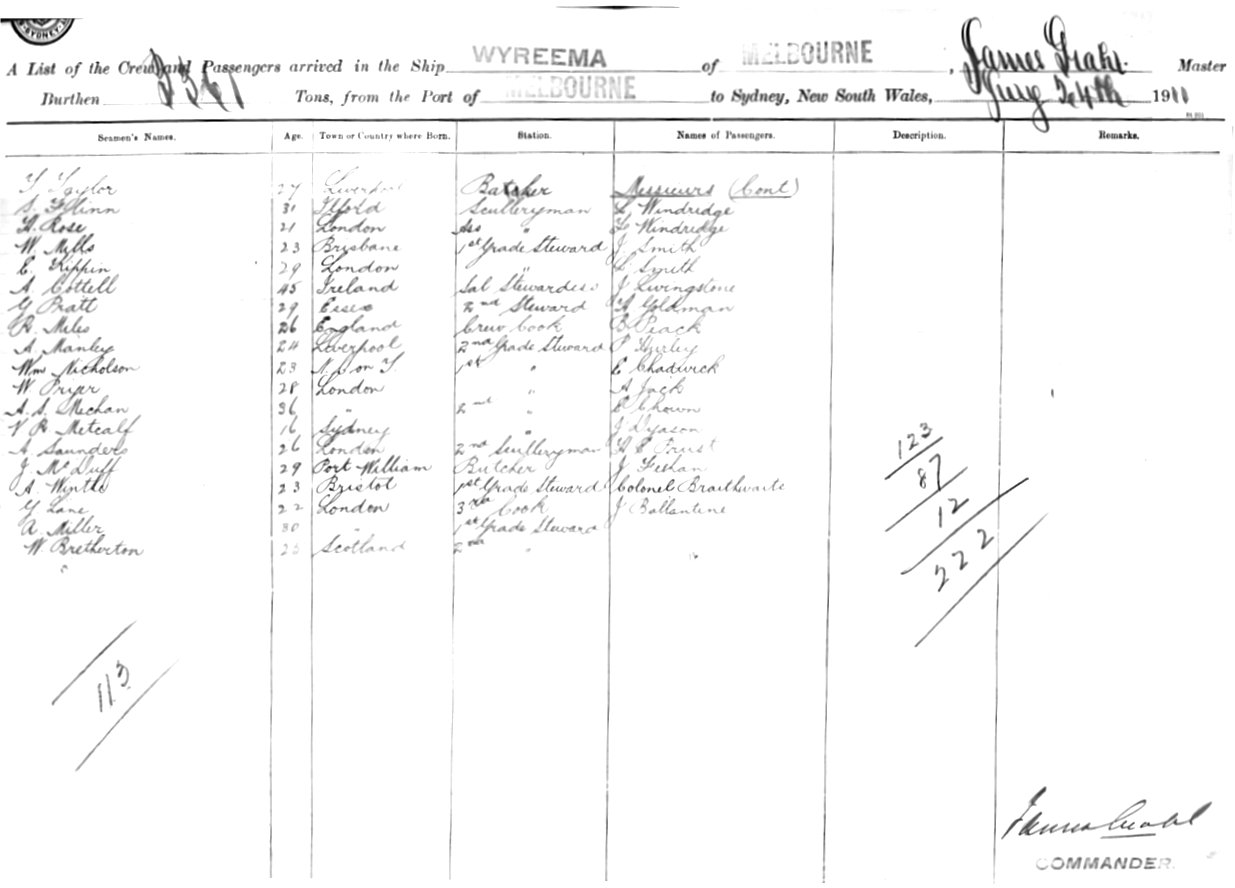 SYDNEY
A List of the Crew and Passengers arrived in the Ship WYREEMA of MELBOURNE, James Master
Burthen 3361 Tons, from the Port of MELBOURNE to Sydney, New South Wales, 24th 1911
Seamen's Names. Age. Town or Country where Born. Station. Names of Passengers. Description. Remarks.
T Taylor 27 Liverpool Butcher Messieurs (Cont)
S. Flinn 31 Ilford Sculleryman L. Windridge
H. Rose 21 London Ass " F Windridge
W. Mills 23 Brisbane 1st Grade Steward J Smith
E. Kippin 29 London " L Smith
A Cottell 45 Ireland Sal Stewardess J Livingstone
G Pratt 29 Essex 2nd Steward A Goldman
R. Miles 26 England Crew Cook B Peack
A. Manley 24 Liverpool 2nd Grade Steward P Hurley
Wm Nicholson 23 N. on T. 1st " E Chadwick
W. Pryor 28 London " A Jack
A. S. Mechan 36 " 2nd " E Chown
V R Metcalf 16 Sydney " J Dyason
A Saunders 26 London 2nd Sculleryman H E Trust
J. McDuff 29 Port William Butcher J Feehan
A. 23 Bristol 1st Grade Steward Colonel Braithwaite
G Lane 22 London 3rd Cook J Ballantine
A. Miller 30 " 1st Grade Steward
W. Bretherton Scotland 2nd "
123
87
12
222
113
James
COMMANDER.